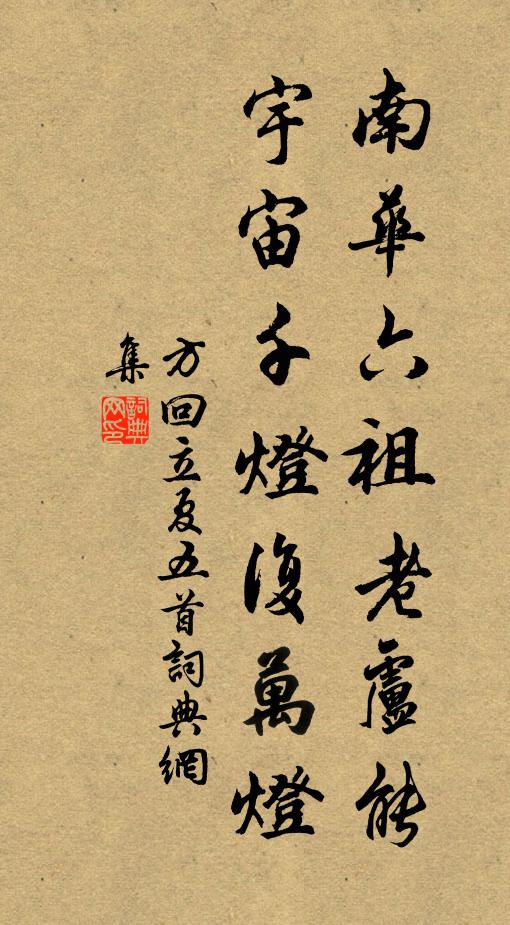 南華六祖老盧能
宇宙千燈復萬燈
方回立夏五首詞典網
集
詞典
网印